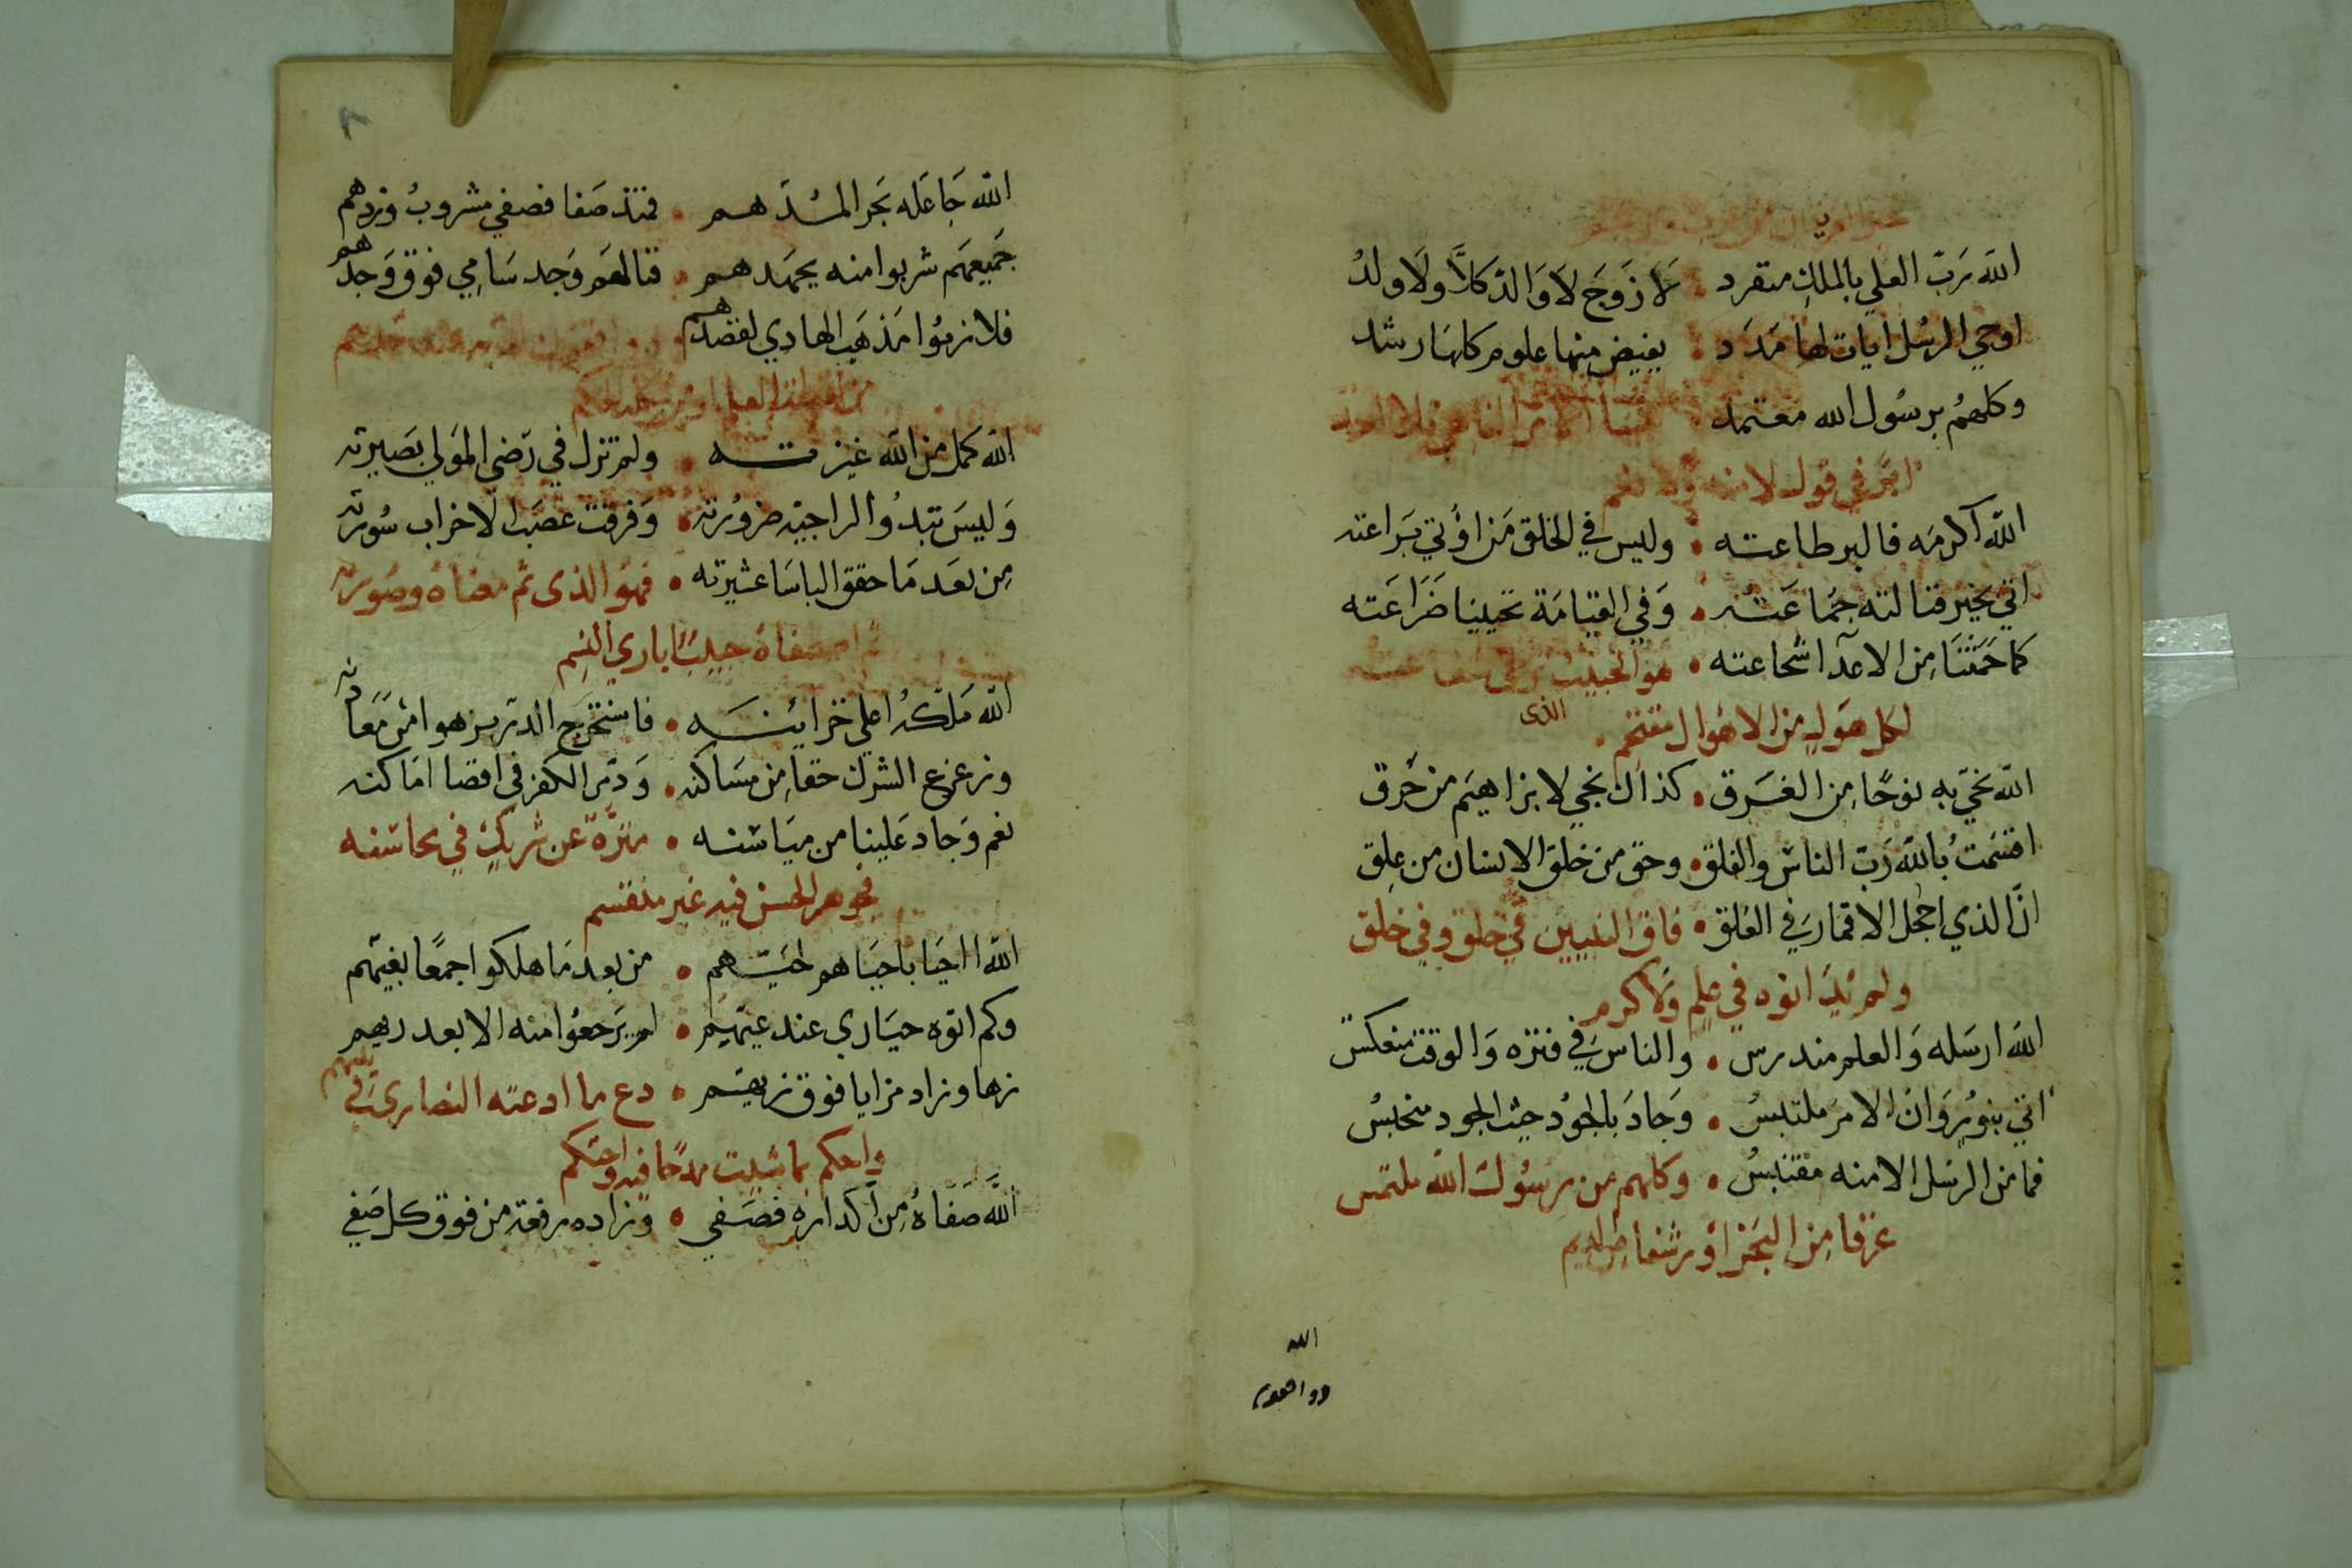 الله رب العلي بالملك منفرد • لا زوج لا والد كلا ولا ولد
اوحي الرسل ايات لها مدد • يفيض منها علوم كلها رشد
وكلهم برسول الله معتمد • نبينا الآمر الناهي فلا احد
ابر في قول لا منه ولا نعم
الله اكرمه فالبر طاعته • وليس في الخلق من اؤتي براعته
اتي بخير فنالته جماعته • وفي القيامة تحيينا ضراعته
كما حمتنا من الاعدآ شجاعته • هو الحبيب الذى ترجى شفاعته
لكل هول من الاهوال مقتحم
الله نجي به نوحا من الغرق • كذاك نجي لابراهيم من حرق
اقسمت بالله رب الناس والفلق • وحق من خلق الانسان من علق
ان الذي اخجل الاقمار في الغلق • فاق النبيين في خلق وفي خلق
ولم يدانوه في علم ولا كرم
الله ارسله والعلم مندرس • والناس في فتره والوقت منعكس
اتي بنور وان الامر ملتبس • وجاد بالجود حيث الجود منحبس
فما من الرسل الا منه مقتبس • وكلهم من رسول الله ملتمس
غرفا من البحر او رشفا من الديم
الله
٨
الله جاعله بحر المدهم • فمنذ صفا فصفي مشروب وردهم
جميعهم شربوا منه بجهدهم • فنالهم وجد سامي فوق وجدهم
فلازموا مذهب الهادي لقصدهم • وواقفون لديه عند حدهم
من نقطة العلم او من شكلة الحكم
الله كمل من الله غيرته • ولم تزل في رضي المولي بصيرته
وليس تبدو الراجيه ضرورته • وفرقت عصب الاخراب سورته
من بعد ما حقق الباسا عشيرته • فهو الذى تم معناه وصورته
ثم اصطفاه حبيبا باري النسم
الله ملكه اعلي خزائنه • فاستخرج الدر من هوامش معادنه
وزعزع الشرك حقا من مساكنه • ودمر الكفر فى اقصا اماكنه
نعم وجاد علينا من مياسنه • منزه عن شريك في محاسنه
فجوهر الحسن فيه غير منقسم
الله احيا باحياهم لحيهم • من بعد ما هلكو اجمعا بغيهم
وكم اتوه حياري عند عيهم • لم يرجعوا منه الا بعد ريهم
زها وزاد مزايا فوق زيهم • دع ما ادعته النصارى في نبيهم
واحكم بما شيت مدحا فيه واحتكم
الله صفاه من اكداره فصفي • وزاده رفعة من فوق كل صفي